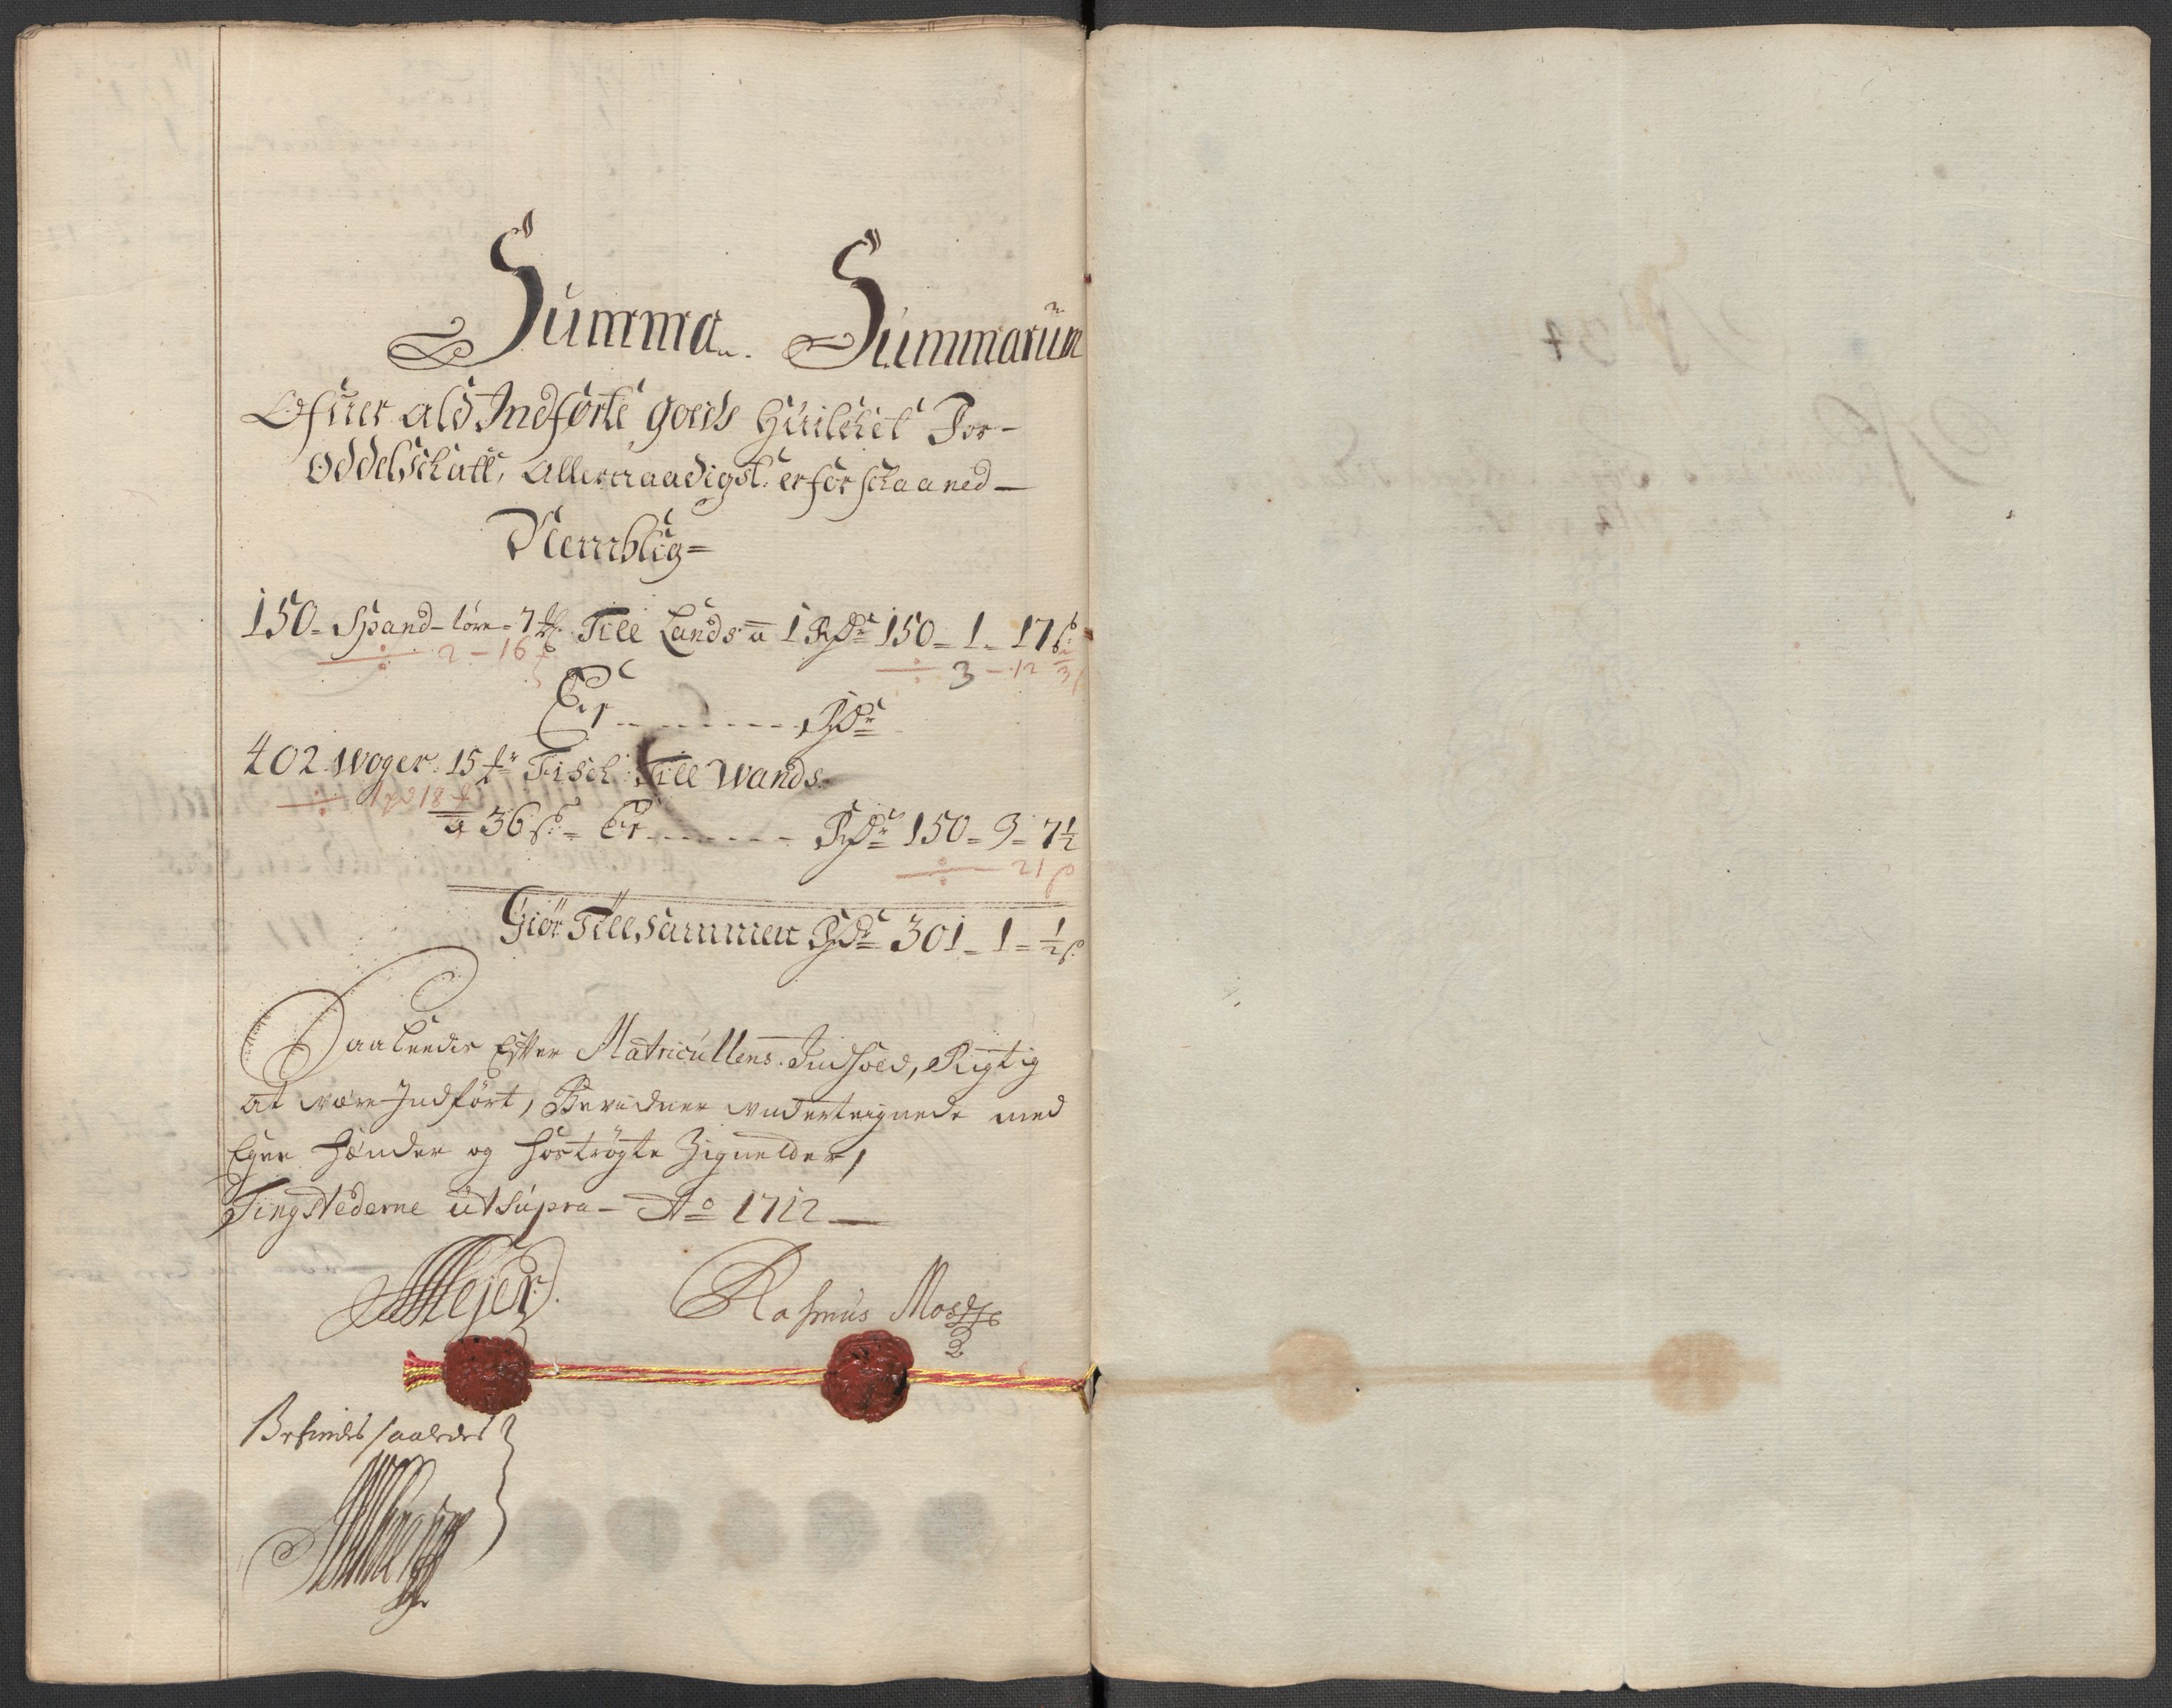 Summa Summarum
Ofuer ald Indförte goeds huilchet For-
Oddelschatt, Allernaadigst er forschaaned -
Nemblig =
150 - Spand - löre - 7 Till Lands a 1 Rdr 150 - 1 - 17 s
÷ 2 - 16 ÷ 3 - 12
Er - - - - - - - - Rdr
402 Woger 15 Fisch Till Wands
÷ 18
a 36 s - Er - - - - - - Rdr 150 - 3 - 7½
÷ 21 s
Giör Till Sammen Rdr 301 - 1 - ½ s
Saaleedis Efter Matricullens Indhold, Rigtig
at være Indfört, Bevidner underteignede med
Egne Hænder og hoströgte Zignetter,
Tingstederne ut Supra - Ao 1712 -
Mejer Rasmus
Befindes saaledes